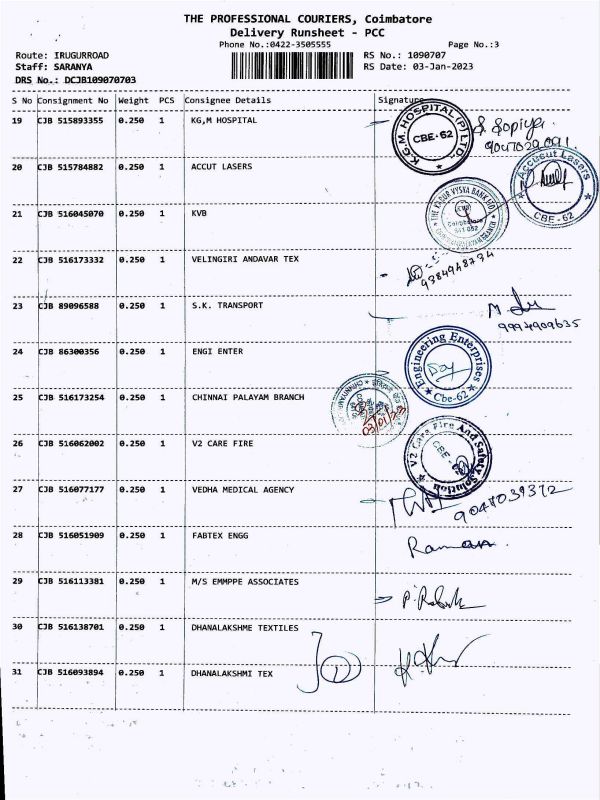 THE PROFESSIONAL COURIERS, Coimbatore
Delivery Runsheet - PCC
Phone No.:0422-3505555
Page No.:3
Route: IRUGURROAD
RS No.: 1090707
Staff: SARANYA
RS Date: 03-Jan-2023
DRS No.: DCJB109070703
S No Consignment No Weight PCS Consignee Details Signature
19 CJB 515893355 0.250 1 KG,M HOSPITAL
K.G.M. HOSPITAL (P) LTD. CBE-62
S. Sopiya
20 CJB 515784882 0.250 1 ACCUT LASERS
Accucut Lasers CBE-62
21 CJB 516045070 0.250 1 KVB
THE KARUR VYSYA BANK
22 CJB 516173332 0.250 1 VELINGIRI ANDAVAR TEX
9384948734
23 CJB 89096588 0.250 1 S.K. TRANSPORT
9994909635
24 CJB 86300356 0.250 1 ENGI ENTER
Engineering Enterprises Cbe-62
25 CJB 516173254 0.250 1 CHINNAI PALAYAM BRANCH
03/01/23
26 CJB 516062002 0.250 1 V2 CARE FIRE
V2 Care Fire And Safety Solution CBE
27 CJB 516077177 0.250 1 VEDHA MEDICAL AGENCY
9047039372
28 CJB 516051909 0.250 1 FABTEX ENGG
Raman
29 CJB 516113381 0.250 1 M/S EMMPPE ASSOCIATES
30 CJB 516138701 0.250 1 DHANALAKSHME TEXTILES
31 CJB 516093894 0.250 1 DHANALAKSHMI TEX